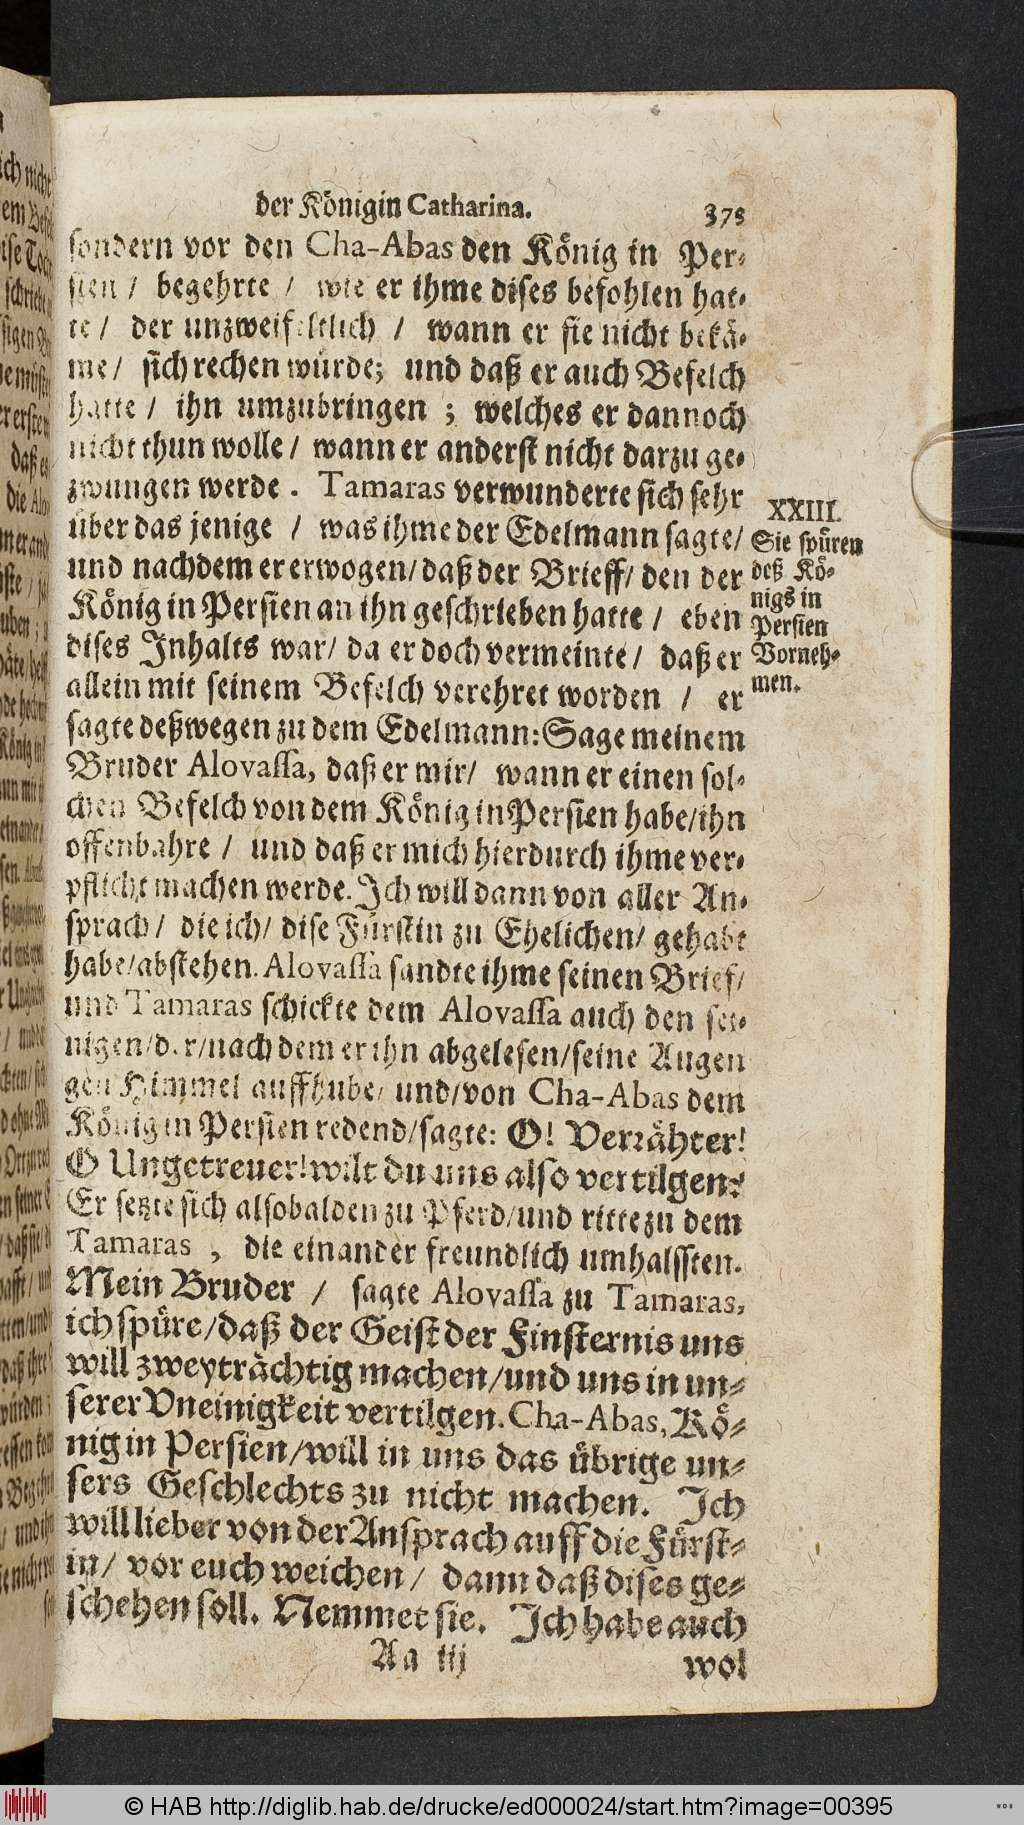 der Königin Catharina. 375
sondern vor den Cha-Abas den König in Per-
sien / begehrte / wie er ihme dises befohlen hat-
te / der unzweifeltlich / wann er sie nicht bekä-
me / sich rechen würde; und daß er auch Befelch
hatte / ihn umzubringen ; welches er dannoch
nicht thun wolle / wann er anderst nicht darzu ge-
zwungen werde . Tamaras verwunderte sich sehr
über das jenige / was ihme der Edelmann sagte /
und nachdem er erwogen / daß der Brieff / den der
König in Persien an ihn geschrieben hatte / eben
dises Inhalts war / da er doch vermeinte / daß er
allein mit seinem Befelch verehret worden / er
sagte deßwegen zu dem Edelmann: Sage meinem
Bruder Alovassa, daß er mir / wann er einen sol-
chen Befelch von dem König in Persien habe / ihn
offenbahre / und daß er mich hierdurch ihme ver-
pflicht machen werde. Ich will dann von aller An-
sprach / die ich / dise Fürstin zu Ehelichen / gehabt
habe / abstehen. Alovassa sandte ihme seinen Brief /
und Tamaras schickte dem Alovassa auch den sei-
nigen / der / nach dem er ihn abgelesen / seine Augen
gen Himmel auffhube / und / von Cha-Abas dem
König in Persien redend / sagte: O! Verrähter!
O Ungetreuer! wilt du uns also vertilgen?
Er setzte sich alsobalden zu Pferd / und ritte zu dem
Tamaras , die einander freundlich umhalssten.
Mein Bruder / sagte Alovassa zu Tamaras,
ich spüre / daß der Geist der Finsternis uns
will zweyträchtig machen / und uns in un-
serer Vneinigkeit vertilgen. Cha-Abas, Kö-
nig in Persien / will in uns das übrige un-
sers Geschlechts zu nicht machen. Ich
will lieber von der Ansprach auff die Fürst-
in / vor euch weichen / dann daß dises ge-
schehen soll. Nemmet sie. Ich habe auch
Aa iij wol
XXIII.
Sie spüren
deß Kö-
nigs in
Persien
Vorneh-
men.
© HAB http://diglib.hab.de/drucke/ed000024/start.htm?image=00395